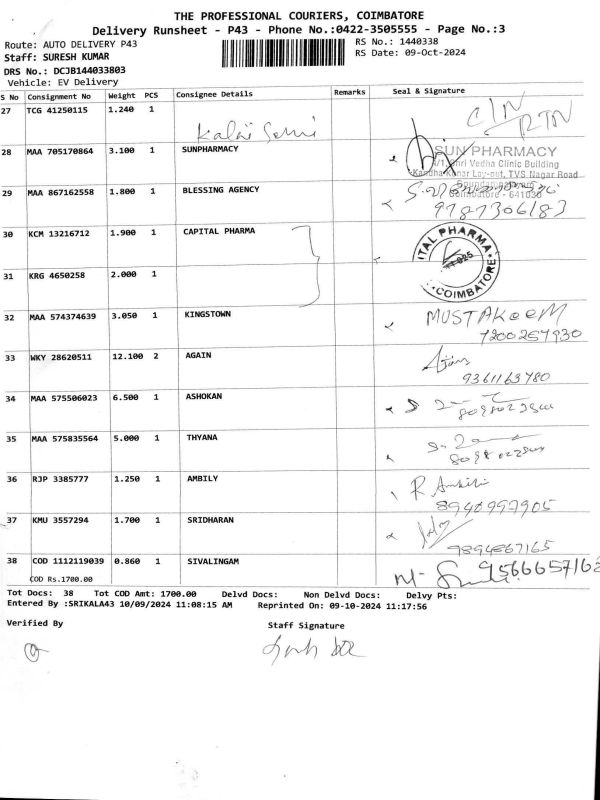 THE PROFESSIONAL COURIERS, COIMBATORE
Delivery Runsheet - P43 - Phone No.:0422-3505555 - Page No.:3
Route: AUTO DELIVERY P43
RS No.: 1440338
Staff: SURESH KUMAR
RS Date: 09-Oct-2024
DRS No.: DCJB144033803
Vehicle: EV Delivery
S No Consignment No Weight PCS Consignee Details Remarks Seal & Signature
27 TCG 41250115 1.240 1
Kalai Selvi
C/N
RTN
28 MAA 705170864 3.100 1 SUNPHARMACY
SUN PHARMACY
Shri Vedha Clinic Building
Kandha Konar Lay-out, TVS Nagar Road
Coimbatore - 641030
29 MAA 867162558 1.800 1 BLESSING AGENCY
9787306183
30 KCM 13216712 1.900 1 CAPITAL PHARMA
ITAL PHARMA
COIMBATORE
31 KRG 4650258 2.000 1
32 MAA 574374639 3.050 1 KINGSTOWN
MUSTAKeeM
7200257930
33 WKY 28620511 12.100 2 AGAIN
9361163780
34 MAA 575506023 6.500 1 ASHOKAN
35 MAA 575835564 5.000 1 THYANA
36 RJP 3385777 1.250 1 AMBILY
R Ambili
8940997905
37 KMU 3557294 1.700 1 SRIDHARAN
9894867165
38 COD 1112119039 0.860 1 SIVALINGAM
9566657162
COD Rs.1700.00
Tot Docs: 38 Tot COD Amt: 1700.00 Delvd Docs: Non Delvd Docs: Delvy Pts:
Entered By :SRIKALA43 10/09/2024 11:08:15 AM Reprinted On: 09-10-2024 11:17:56
Verified By
Staff Signature